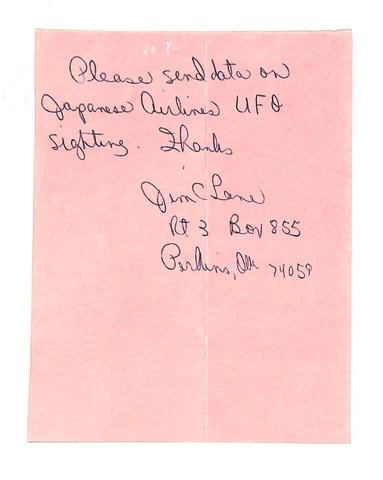 Please send data on
Japanese Airlines UFO
sighting. Thanks
Jim C Lane
Rt 3 Box 855
Perkins, 74059